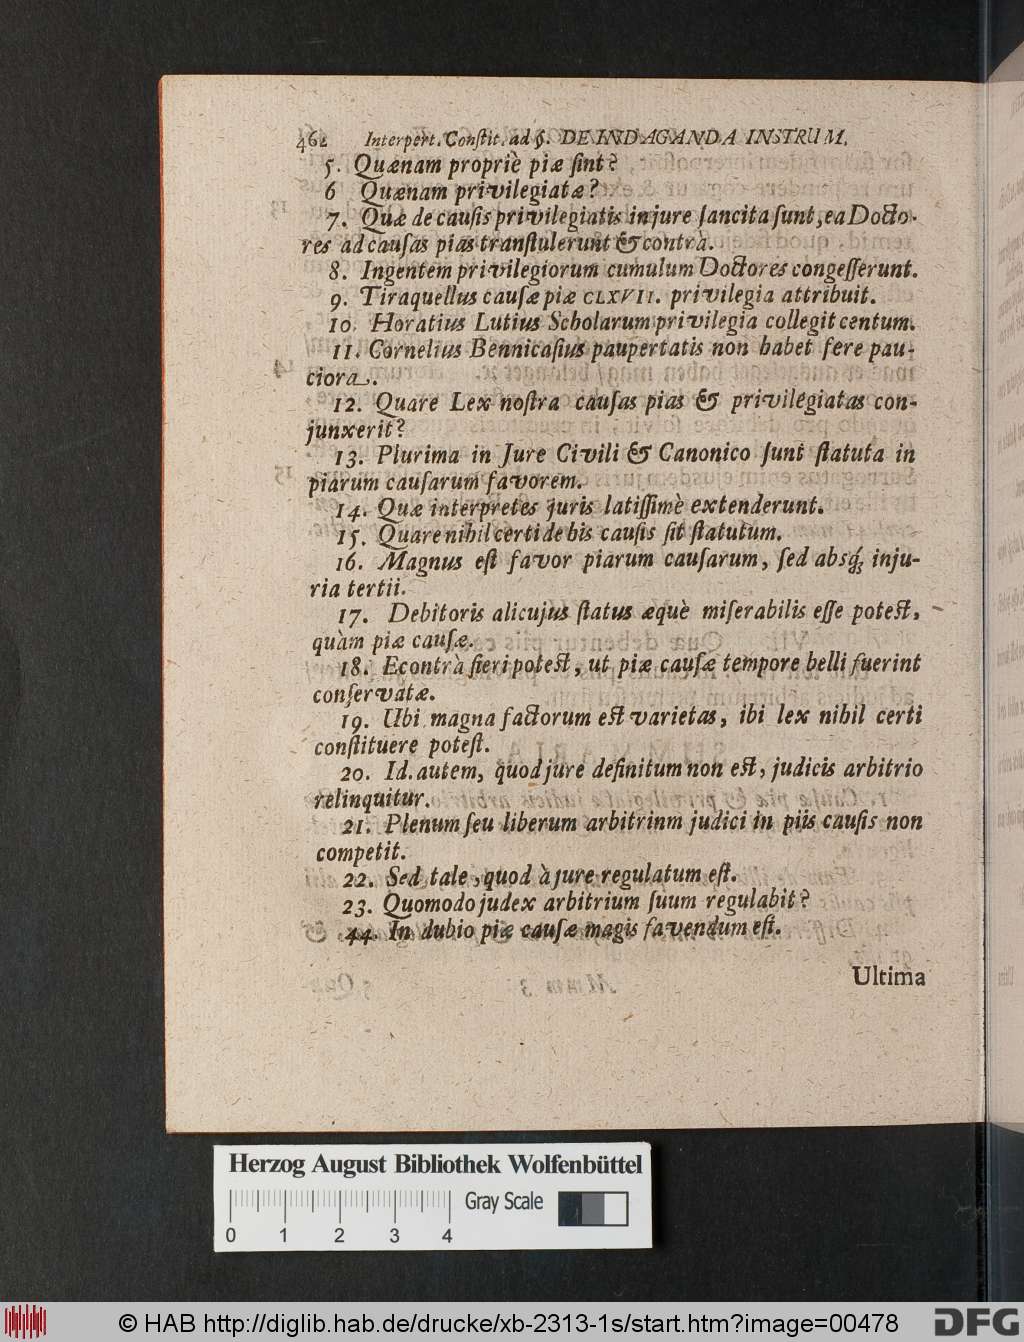 462 Interpert. Conſtit. ad §. DE INDAGANDA INSTRUM.
5. Quænam propriè piæ ſint?
6 Quænam privilegiatæ?
7. Quæ de cauſis privilegiatis in jure ſancita ſunt, ea Docto-
res ad cauſas pias tranſtulerunt & contrà.
8. Ingentem privilegiorum cumulum Doctores congeſſerunt.
9. Tiraquellus cauſæ piæ CLXVII. privilegia attribuit.
10. Horatius Lutius Scholarum privilegia collegit centum.
11. Cornelius Bennicaſius paupertatis non habet fere pau-
ciora.
12. Quare Lex noſtra cauſas pias & privilegiatas con-
junxerit?
13. Plurima in Jure Civili & Canonico ſunt ſtatuta in
piarum cauſarum favorem.
14. Quæ interpretes juris latiſſimè extenderunt.
15. Quare nihil certi de his cauſis ſit ſtatutum.
16. Magnus eſt favor piarum cauſarum, ſed absq; inju-
ria tertii.
17. Debitoris alicujus ſtatus æquè miſerabilis eſſe poteſt,
quàm piæ cauſæ.
18. Econtrà fieri poteſt, ut piæ cauſæ tempore belli fuerint
conſervatæ.
19. Ubi magna factorum eſt varietas, ibi lex nihil certi
conſtituere poteſt.
20. Id. autem, quod jure definitum non eſt, judicis arbitrio
relinquitur.
21. Plenum ſeu liberum arbitrinm judici in piis cauſis non
competit.
22. Sed tale, quod à jure regulatum eſt.
23. Quomodo judex arbitrium ſuum regulabit?
44. In dubio piæ cauſæ magis favendum eſt.
Ultima
Herzog August Bibliothek Wolfenbüttel
Gray Scale
0 1 2 3 4
© HAB http://diglib.hab.de/drucke/xb-2313-1s/start.htm?image=00478
DFG